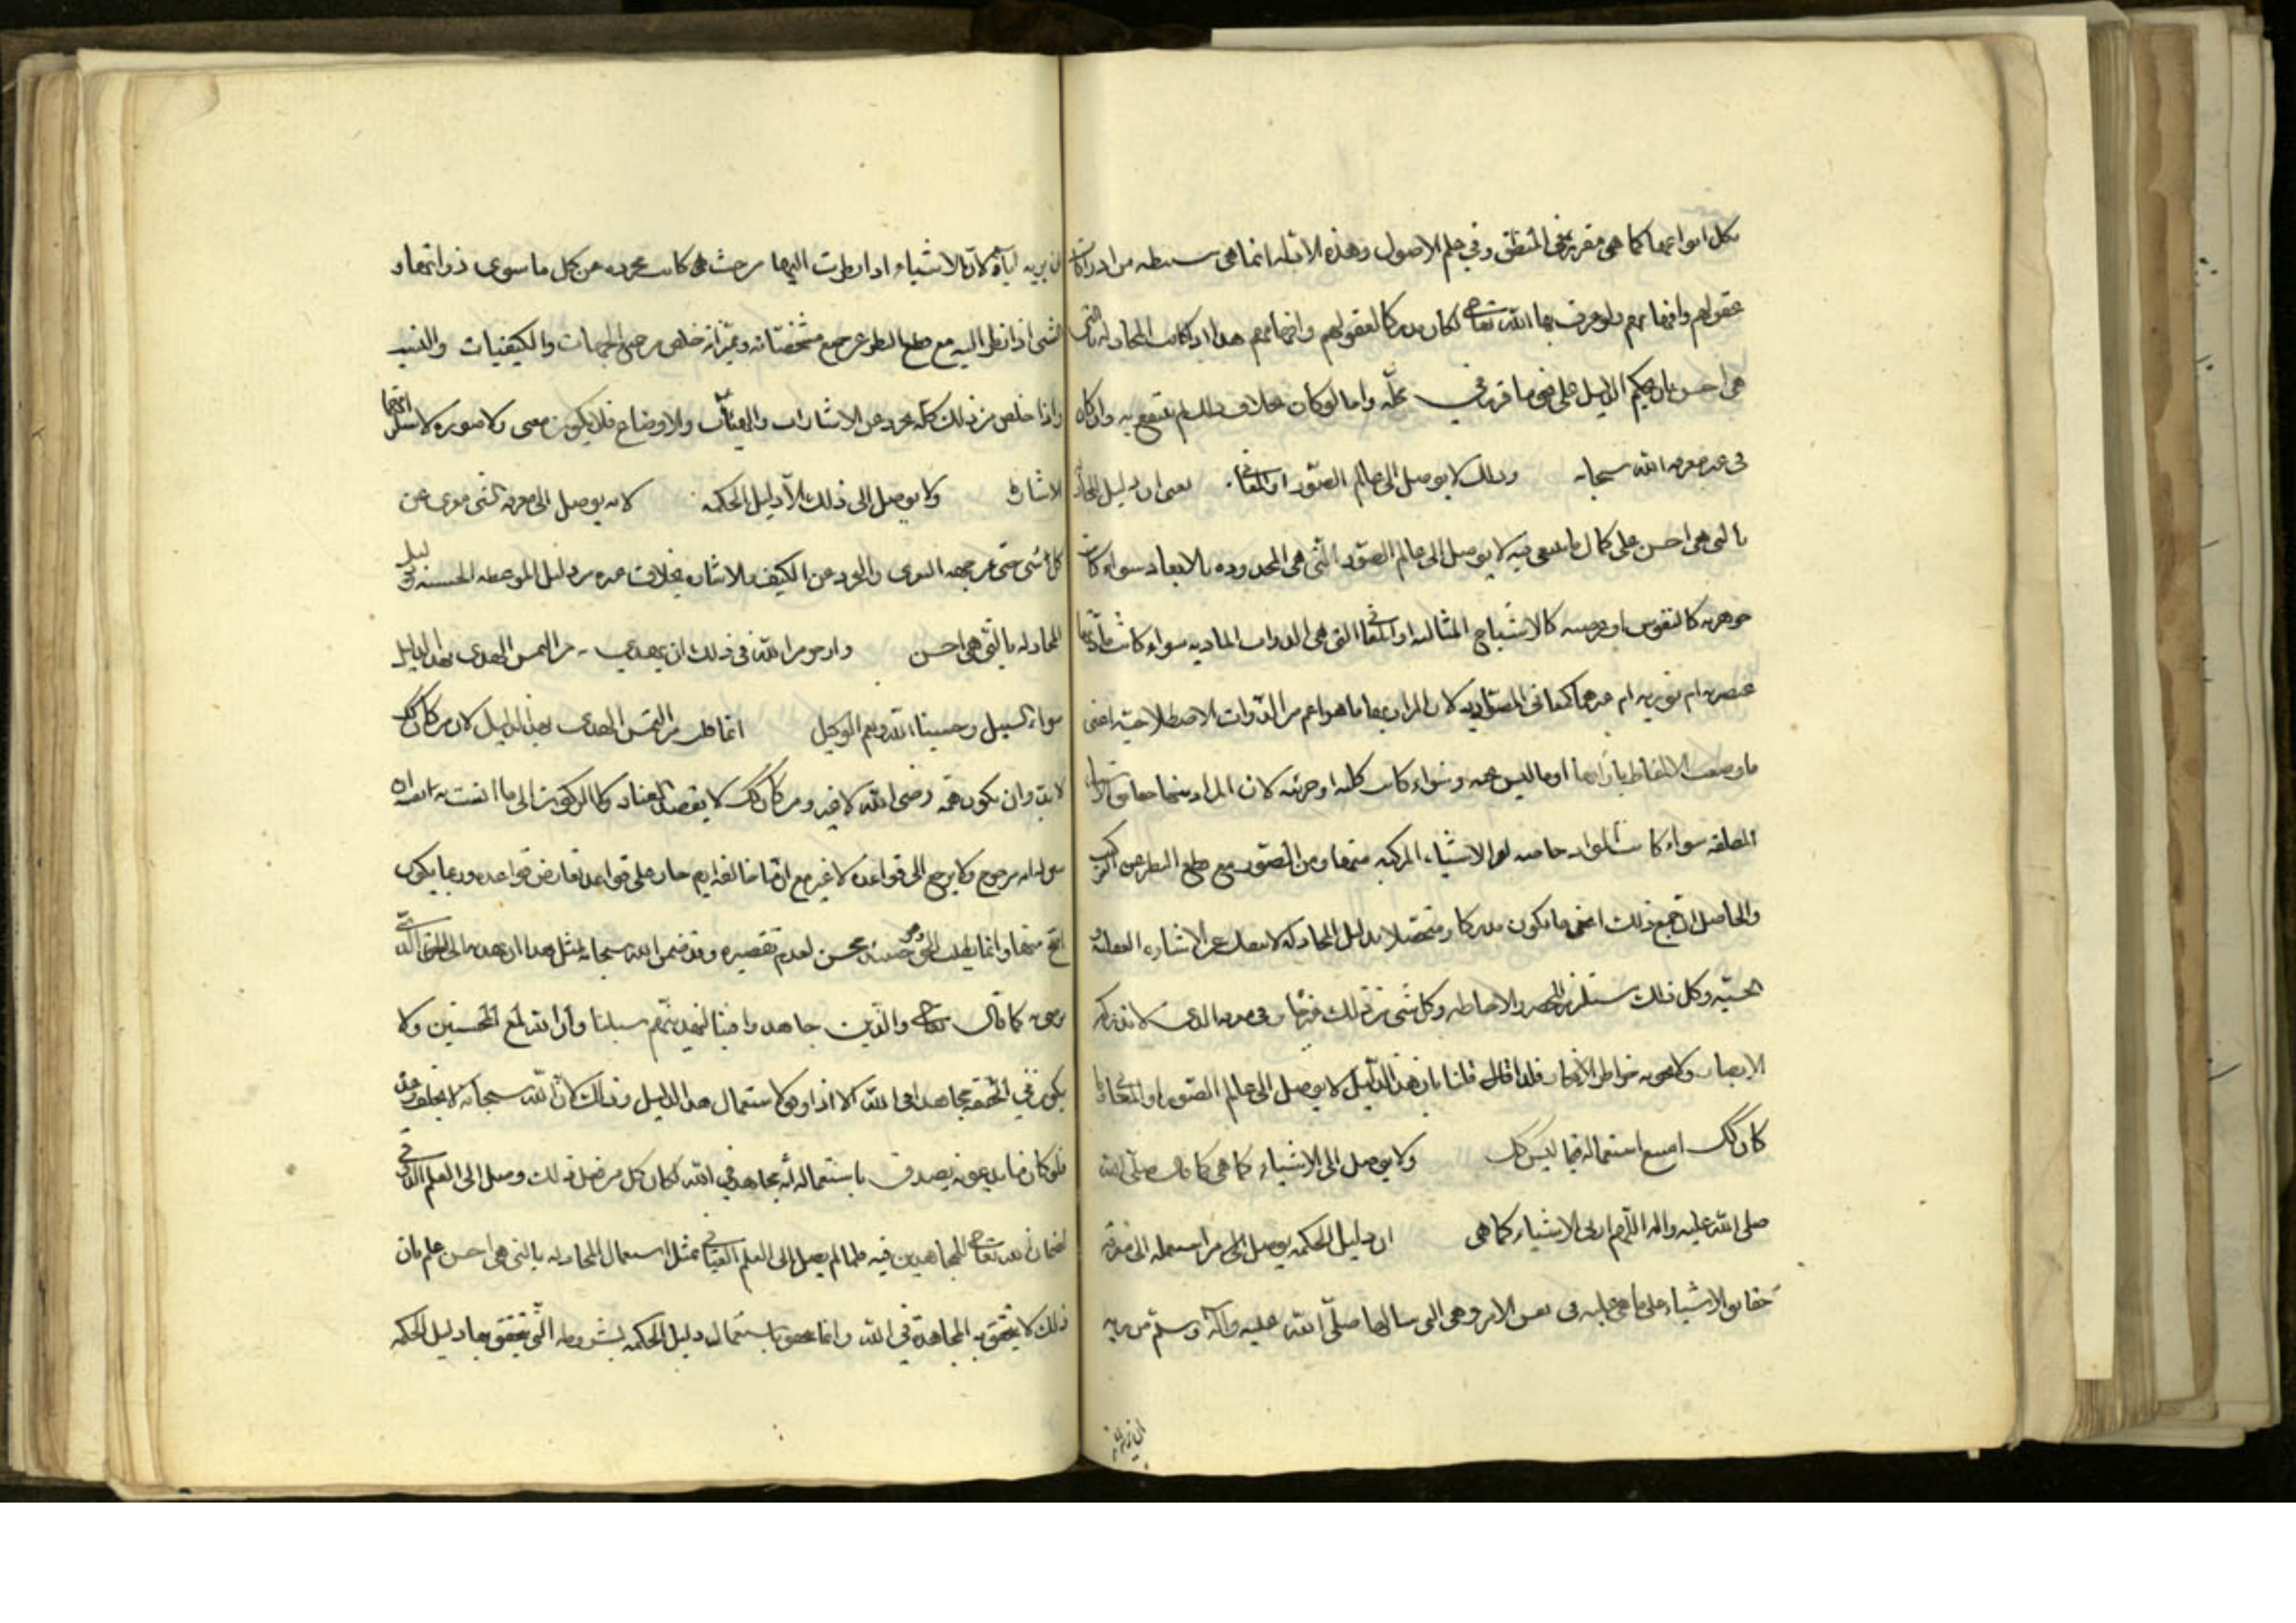 بكل انواعها كما هى مقررة فى المنطق وفى علم الاصول وهذه الادلة انما هى مستنبطه من ادراكات
عقولهم وافهامهم ولو عرف بها الله تعالى لكان مدركا لعقولهم وافهامهم هذا اذا كانت المجادلة بالتى
هى احسن بان يحكم الدليل على نحو ما قرر فى محله واما لو كان بخلاف ذلك لم ينتفع به وان كان
فى غير معرفه الله سبحانه وذلك لا يوصل الى عالم الصور او المعانى يعنى ان دليل المجادلة
بالتى هى احسن على كمال ما ينبغى فيه لا يوصل الى عالم الصور التى هى المحدوده بالابعاد سواء كانت
جوهريه كالنفوس او عرضيه كالاشباح المثاليه او المعانى التى هى الذوات الماديه سواء كانت مادتها
عنصريه ام نوريه ام غيرهما كمعانى المصادر لان المراد بها ما هو اعم من الذوات الاصطلاحية اعنى
ما وضعت الالفاظ بازائها او ما ليس عنه وسواء كانت كليه او جزئيه لان المراد منها
المطلقه سواء كانت لمواد خاصه ام الاشياء المركبه منها ومن الصور مع قطع النظر عن
والحاصل ان جميع ذلك اعنى ما يكون مدركا ومتحصلا بدليل المجادلة لا ينفك عن الاشاره العقليه او
الحسيه وكل ذلك مستلزم للحصر والاحاطه وكل شىء من ذلك لا تدركه
الابصار ولا تحويه خواطر الافكار فلذا قلنا بان هذا الدليل لا يوصل الى عالم الصور او المعانى وما
كان كك امتنع استعماله فيما ليس كك ولا يوصل الى الاشياء كما هى كما قال صلى الله
صلى الله عليه واله اللهم ارنى الاشياء كما هى ان دليل الحكمه يوصل من استعمله الى معرفة
حقائق الاشياء على ما هى عليه فى نفس الامر وهى التى سالها صلى الله عليه وآله وسلم من ربه
ان يريه اياها لان الاشياء اذا نظرت اليها من حيث هى كانت مجرده عن كل ما سوى ذواتها و
الشىء اذا نظر اليه مع قطع النظر عن جميع مشخصاته ومميزاته خلص من جميع الجهات والكيفيات والنسب
واذا خلص من ذلك كله تجرد عن الاشارات والهيئات والاوضاع فلا يكون معنى ولا صوره
الاشارة ولا يوصل الى ذلك الا دليل الحكمه لانه يوصل الى معرفه الشىء معرى عن
كل شىء حتى عن جهه السوى والتجرد عن الكيف والاشاره بخلاف غيره من دليل الموعظه الحسنه ودليل
المجادله بالتى هى احسن وارجو من الله فى ذلك ان يهدى به من التمس الهدى بهذا الدليل
سواء السبيل وحسبنا الله ونعم الوكيل انما قلت من التمس الهدى بهذا الدليل لان من كان كك
لا بد وان يكون همه رضى الله لا غير ومن كان كك لا يقصد العناد ولا الركون الى ما انست به نفسه
ولا يرجع الى قواعده لا غير مع ان ما خالفه ايم جار على قواعد تعارض قواعده وربما يكون
اصح منها وانما يطلب الحق وهو حينئذ محسن لعدم تقصيره وقد ضمن الله سبحانه لمثل هذا ان يهديه الى
كما قال تعالى والذين جاهدوا فينا لنهدينهم سبلنا وان الله لمع المحسنين ولا
يكون فى الحقيقة مجاهدا فى الله الا اذا وفق لاستعمال هذا الدليل وذلك لان الله سبحانه لا يخلف وعده
فلو كان غيره يصدق باستعماله انه مجاهد فى الله لكان كل من فعل ذلك وصل الى العلم
لضمان الله تعالى للمجاهدين فيه فلما لم يصل الى العلم العيانى بمثل استعمال المجادله بالتى هى احسن علم بان
ذلك لا يتحقق به المجاهدة فى الله وانما يتحقق باستعمال دليل الحكمه بشروطه التى يتحقق بها دليل الحكمه